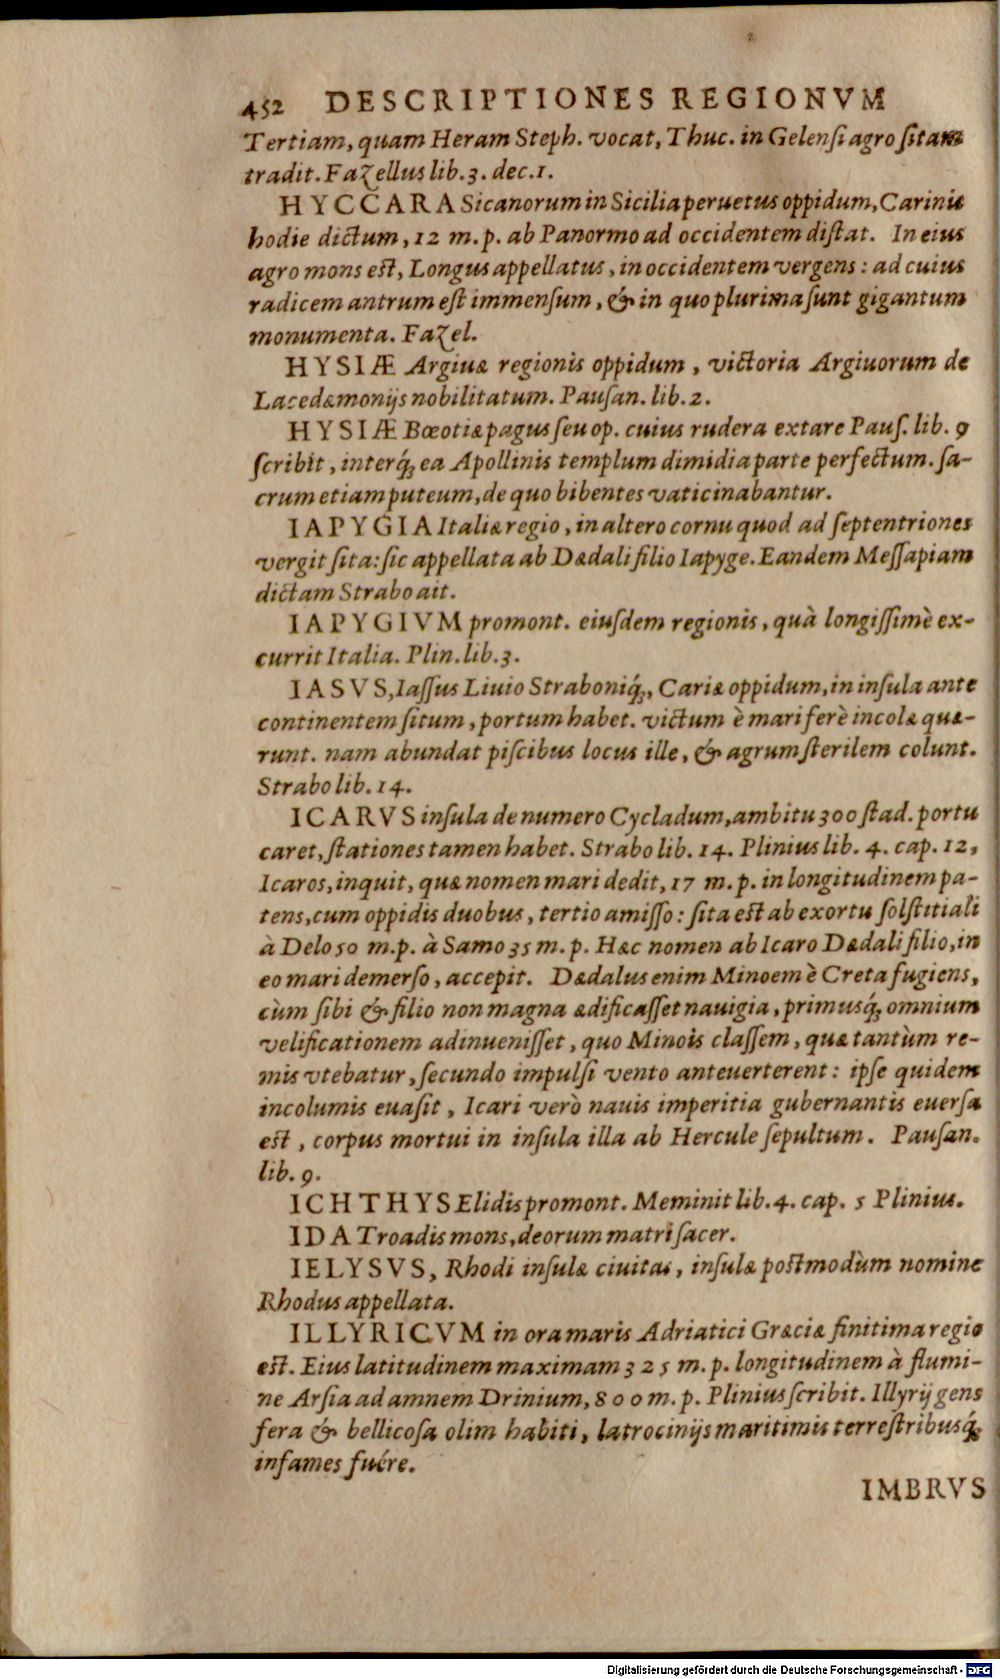 452 DESCRIPTIONES REGIONVM
Tertiam, quam Heram Steph. vocat, Thuc. in Gelensi agro sitam
tradit. Fazellus lib. 3. dec. 1.
HYCCARA Sicanorum in Sicilia peruetus oppidum, Carinis
hodie dictum, 12 m. p. ab Panormo ad occidentem distat. In eius
agro mons est, Longus appellatus, in occidentem vergens: ad cuius
radicem antrum est immensum, & in quo plurima sunt gigantum
monumenta. Fazel.
HYSIÆ Argiuæ regionis oppidum, victoria Argiuorum de
Lacedæmonijs nobilitatum. Pausan. lib. 2.
HYSIÆ Bœotiæ pagus seu op. cuius rudera extare Paus. lib. 9
scribit, interq́; ea Apollinis templum dimidia parte perfectum. sa-
crum etiam puteum, de quo bibentes vaticinabantur.
IAPYGIA Italiæ regio, in altero cornu quod ad septentriones
vergit sita: sic appellata ab Dædali filio Iapyge. Eandem Messapiam
dictam Strabo ait.
IAPYGIVM promont. eiusdem regionis, quà longissimè ex-
currit Italia. Plin. lib. 3.
IASVS, Iassus Liuio Straboniq́;, Cariæ oppidum, in insula ante
continentem situm, portum habet. victum è mari ferè incolæ quæ-
runt. nam abundat piscibus locus ille, & agrum sterilem colunt.
Strabo lib. 14.
ICARVS insula de numero Cycladum, ambitu 300 stad. portu
caret, stationes tamen habet. Strabo lib. 14. Plinius lib. 4. cap. 12,
Icaros, inquit, quæ nomen mari dedit, 17 m. p. in longitudinem pa-
tens, cum oppidis duobus, tertio amisso: sita est ab exortu solstitiali
à Delo 50 m. p. à Samo 35 m. p. Hæc nomen ab Icaro Dædali filio, in
eo mari demerso, accepit. Dædalus enim Minoem è Creta fugiens,
cùm sibi & filio non magna ædificasset nauigia, primusq́; omnium
velificationem adinuenisset, quo Minois classem, quæ tantùm re-
mis vtebatur, secundo impulsi vento anteuerterent: ipse quidem
incolumis euasit, Icari verò nauis imperitia gubernantis euersa
est, corpus mortui in insula illa ab Hercule sepultum. Pausan.
lib. 9.
ICHTHYS Elidis promont. Meminit lib. 4. cap. 5 Plinius.
IDA Troadis mons, deorum matri sacer.
IELYSVS, Rhodi insulæ ciuitas, insulæ postmodùm nomine
Rhodus appellata.
ILLYRICVM in ora maris Adriatici Græciæ finitima regio
est. Eius latitudinem maximam 325 m. p. longitudinem à flumi-
ne Arsia ad amnem Drinium, 800 m. p. Plinius scribit. Illyrij gens
fera & bellicosa olim habiti, latrocinijs maritimis terrestribusq́;
infames fuére.
IMBRVS
Digitalisierung gefördert durch die Deutsche Forschungsgemeinschaft - DFG